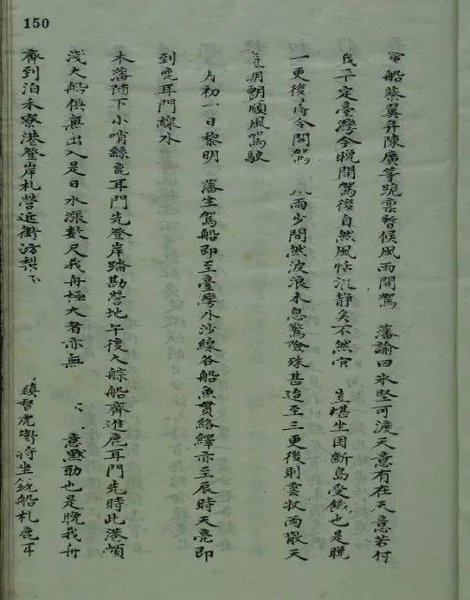 150
船蔡翼弄陳廣等跪稟暫候風雨間駕 藩諭曰氷堅可渡天意有在天意若付
我平定臺灣今晚開駕後自然風恬浪静矣不然官 豈堪坐困斷島受餓也是晚
一更後 令開駕 風雨少間然波浪未息驚險殊甚迨至三更後則雲收雨散天
氣明朗順風駕駛
月初一日黎明 藩坐駕船即至臺灣外沙線各船魚貫絡繹亦至辰時天亮即
到鹿耳門線外
本藩隨下小哨繇鹿耳門先登岸踏勘營地午後入 船齊進鹿耳門先時此港頗
淺大船俱無出入是日水漲數尺我舟極大者亦無 意默助也是晚我舟
齊到泊禾寮港登岸札營近街坊梨 鎮督虎衛將坐銃船札鹿耳